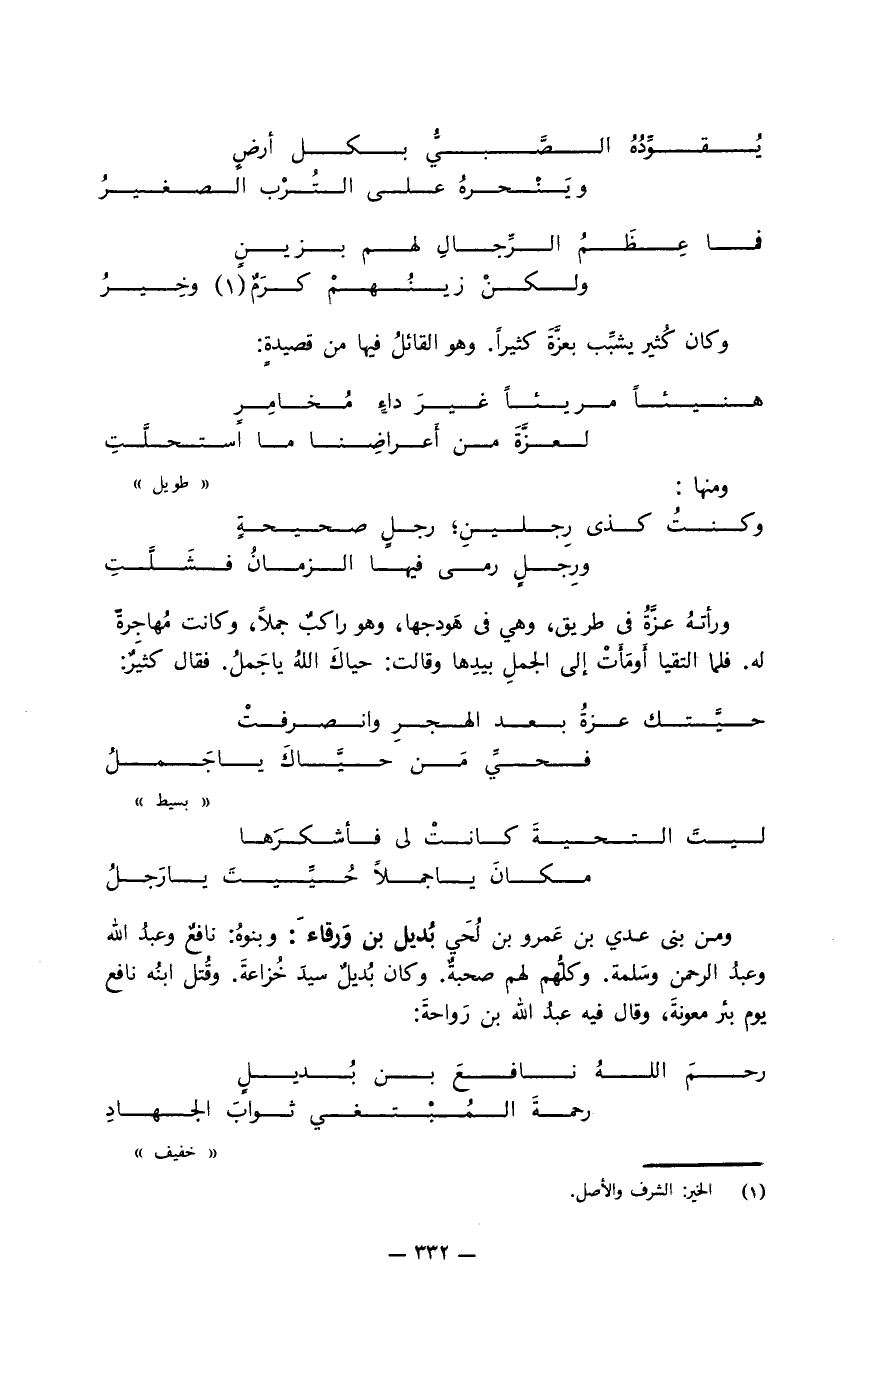 يُقَوِّدُهُ الصَّبيُّ بكل أرضٍ
ويَنْحرهُ على التُرْب الصغيرُ
فما عِظَمُ الرِّجالِ لهم بزينٍ
ولكنْ زينُهمْ كرَمٌ(١) وخِيرُ
وكان كُثير يشبِّب بعزَّةَ كثيراً. وهو القائلُ فيها من قصيدةٍ:
هنيئاً مريئاً غيرَ داءٍ مُخامِرٍ
لعزَّةَ من أَعراضِنا ما أستحلَّتِ
ومنها :
« طويل »
وكنتُ كذى رِجلينِ؛ رجلٍ صحيحةٍ
ورِجلٍ رمى فيها الزمانُ فشَلَّتِ
ورأتهُ عزَّةُ فى طريق، وهي فى هَودجها، وهو راكبٌ جملاً، وكانت مُهاجِرةً
له. فلما التقيا أَومَأَتْ إلى الجملِ بيدِها وقالت: حياكَ اللهُ ياجَملُ. فقال كثيرٌ:
حيَّتك عزةُ بعد الهجرِ وانصرفتْ
فحيِّ مَن حيَّاكَ ياجَملُ
« بسيط »
ليتَ التحيةَ كانتْ لى فأشكرَها
مكانَ ياجملاً حُيِّيتَ يارَجلُ
ومن بنى عدي بن عَمرو بن لُحَي بُديل بن وَرقاءَ: وبنوهُ: نافعٌ وعبدُ الله
وعبدُ الرحمن وسَلمة. وكلُّهم لهم صحبةٌ. وكان بُديلٌ سيدَ خُزاعةَ. وقُتل ابنُه نافع
يوم بئر معونةَ، وقال فيه عبدُ الله بن رَواحةَ:
رحمَ اللهُ نافعَ بن بُديلٍ
رحمةَ المُبْتغي ثوابَ الجهادِ
« خفيف »
(١) الخير: الشرف والأصل.
— ٣٣٢ —